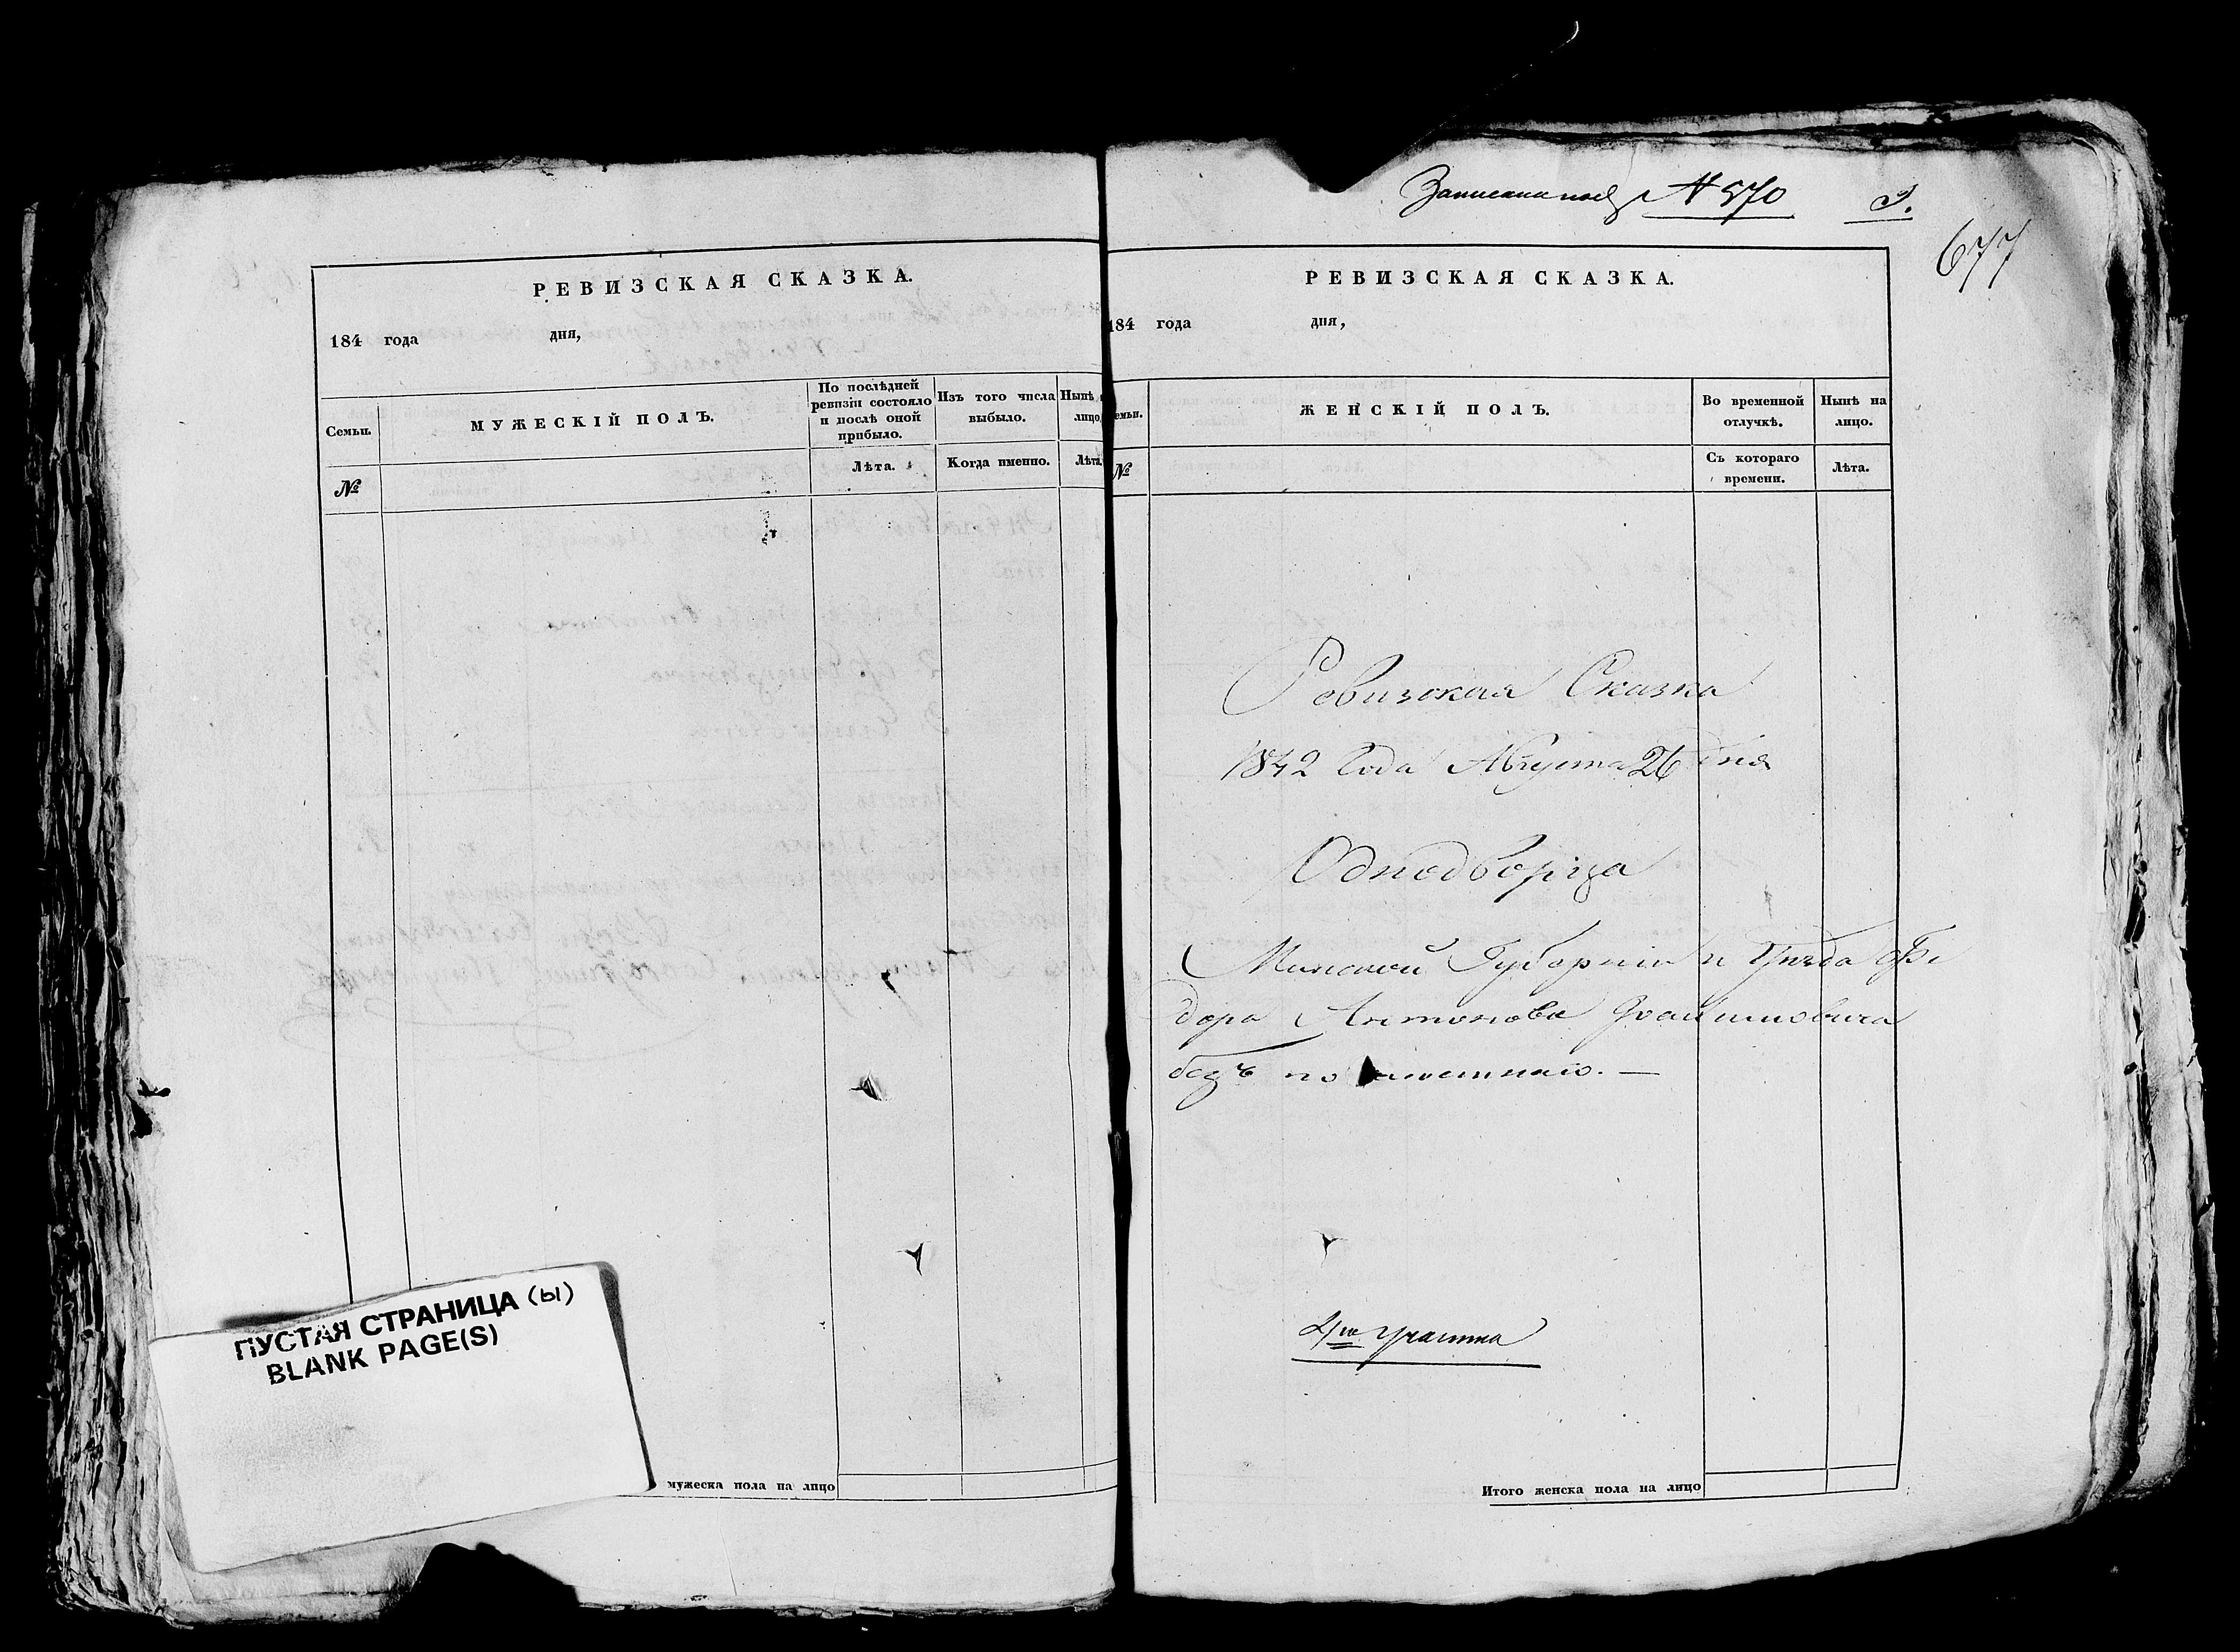 РЕВИЗСКАЯ СКАЗКА.
184 года дня,
Семьи.
МУЖЕСКІЙ ПОЛЪ.
По послѣдней
ревизіи состояло
и послѣ оной
прибыло.
Изъ того числа
выбыло.
Нынѣ
лицо
№
Лѣта.
Когда именно.
Лѣта
ПУСТАЯ СТРАНИЦА (Ы)
BLANK PAGE(S)
мужеска пола на лицо
Записана подъ № 570
677
РЕВИЗСКАЯ СКАЗКА.
184 года дня,
емьи.
ЖЕНСКІЙ ПОЛЪ.
Во временной
отлучкѣ.
Нынѣ на
лицо.
№
Съ котораго
времени.
Лѣта.
Ревизская Сказка
1842 Года Августа 26 дня
Однодворца
Минской Губерніи и Уѣзда Фе
дора Антонова
безъ
4го участка
Итого женска пола на лицо